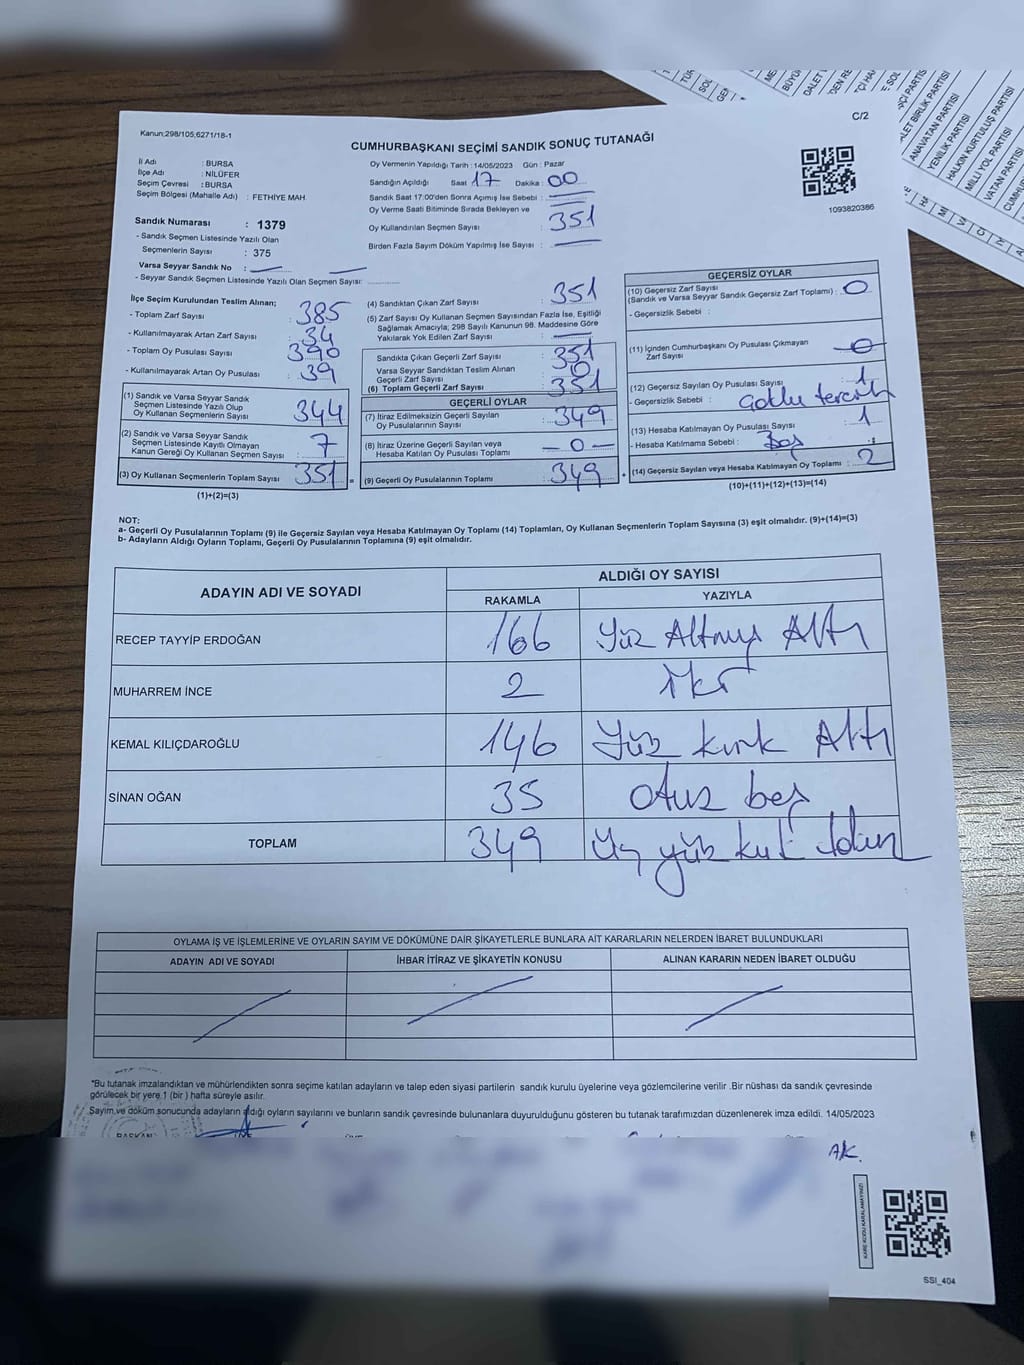 C/2
Kanun:298/105;6271/18-1
CUMHURBAŞKANI SEÇİMİ SANDIK SONUÇ TUTANAĞI
İl Adı : BURSA
İlçe Adı : NİLÜFER
Seçim Çevresi : BURSA
Seçim Bölgesi (Mahalle Adı) : FETHİYE MAH
Sandık Numarası : 1379
- Sandık Seçmen Listesinde Yazılı Olan
Seçmenlerin Sayısı : 375
Varsa Seyyar Sandık No :
- Seyyar Sandık Seçmen Listesinde Yazılı Olan Seçmen Sayısı:
Oy Vermenin Yapıldığı Tarih : 14/05/2023 Gün : Pazar
Sandığın Açıldığı Saat 17 Dakika : 00
Sandık Saat 17:00'den Sonra Açımış İse Sebebi :
Oy Verme Saati Bitiminde Sırada Bekleyen ve
Oy Kullandırılan Seçmen Sayısı : 351
Birden Fazla Sayım Döküm Yapılmış İse Sayısı :
1093820386
İlçe Seçim Kurulundan Teslim Alınan;
- Toplam Zarf Sayısı : 385
- Kullanılmayarak Artan Zarf Sayısı : 34
- Toplam Oy Pusulası Sayısı : 390
- Kullanılmayarak Artan Oy Pusulası : 39
(1) Sandık ve Varsa Seyyar Sandık
Seçmen Listesinde Yazılı Olup
Oy Kullanan Seçmenlerin Sayısı : 344
(2) Sandık ve Varsa Seyyar Sandık
Seçmen Listesinde Kayıtlı Olmayan
Kanun Gereği Oy Kullanan Seçmen Sayısı : 7
(3) Oy Kullanan Seçmenlerin Toplam Sayısı : 351 =
(1)+(2)=(3)
(4) Sandıktan Çıkan Zarf Sayısı : 351
(5) Zarf Sayısı Oy Kullanan Seçmen Sayısından Fazla İse, Eşitliği
Sağlamak Amacıyla; 298 Sayılı Kanunun 98. Maddesine Göre
Yakılarak Yok Edilen Zarf Sayısı :
Sandıkta Çıkan Geçerli Zarf Sayısı : 351
Varsa Seyyar Sandıktan Teslim Alınan
Geçerli Zarf Sayısı : 0
(6) Toplam Geçerli Zarf Sayısı : 351
GEÇERLİ OYLAR
(7) İtiraz Edilmeksizin Geçerli Sayılan
Oy Pusulalarının Sayısı : 349
(8) İtiraz Üzerine Geçerli Sayılan veya
Hesaba Katılan Oy Pusulası Toplamı : - 0 -
(9) Geçerli Oy Pusulalarının Toplamı : 349 +
GEÇERSİZ OYLAR
(10) Geçersiz Zarf Sayısı
(Sandık ve Varsa Seyyar Sandık Geçersiz Zarf Toplamı) : 0
- Geçersizlik Sebebi :
(11) İçinden Cumhurbaşkanı Oy Pusulası Çıkmayan
Zarf Sayısı : 0
(12) Geçersiz Sayılan Oy Pusulası Sayısı : 1
- Geçersizlik Sebebi : Çoklu tercih
(13) Hesaba Katılmayan Oy Pusulası Sayısı : 1
- Hesaba Katılmama Sebebi : Boş
(14) Geçersiz Sayılan veya Hesaba Katılmayan Oy Toplamı : 2
(10)+(11)+(12)+(13)=(14)
NOT:
a- Geçerli Oy Pusulalarının Toplamı (9) ile Geçersiz Sayılan veya Hesaba Katılmayan Oy Toplamı (14) Toplamları, Oy Kullanan Seçmenlerin Toplam Sayısına (3) eşit olmalıdır. (9)+(14)=(3)
b- Adayların Aldığı Oyların Toplamı, Geçerli Oy Pusulalarının Toplamına (9) eşit olmalıdır.
ADAYIN ADI VE SOYADI
ALDIĞI OY SAYISI
RAKAMLA YAZIYLA
RECEP TAYYİP ERDOĞAN 166 Yüz Altmış Altı
MUHARREM İNCE 2 iki
KEMAL KILIÇDAROĞLU 146 Yüz kırk Altı
SİNAN OĞAN 35 otuz beş
TOPLAM 349 Üç yüz kırk dokuz
OYLAMA İŞ VE İŞLEMLERİNE VE OYLARIN SAYIM VE DÖKÜMÜNE DAİR ŞİKAYETLERLE BUNLARA AİT KARARLARIN NELERDEN İBARET BULUNDUKLARI
ADAYIN ADI VE SOYADI İHBAR İTİRAZ VE ŞİKAYETİN KONUSU ALINAN KARARIN NEDEN İBARET OLDUĞU
"Bu tutanak imzalandıktan ve mühürlendikten sonra seçime katılan adayların ve talep eden siyasi partilerin sandık kurulu üyelerine veya gözlemcilerine verilir .Bir nüshası da sandık çevresinde
görülecek bir yere 1 (bir ) hafta süreyle asılır.
Sayım ve döküm sonucunda adayların aldığı oyların sayılarını ve bunların sandık çevresinde bulunanlara duyurulduğunu gösteren bu tutanak tarafımızdan düzenlenerek imza edildi. 14/05/2023
BAŞKAN
AK.
KARE KODU KARALAMAYINIZ!
SSI_404
ANAVATAN PARTİSİ
YENİLİK PARTİSİ
HALKIN KURTULUŞ PARTİSİ
MİLLİ YOL PARTİSİ
VATAN PARTİSİ